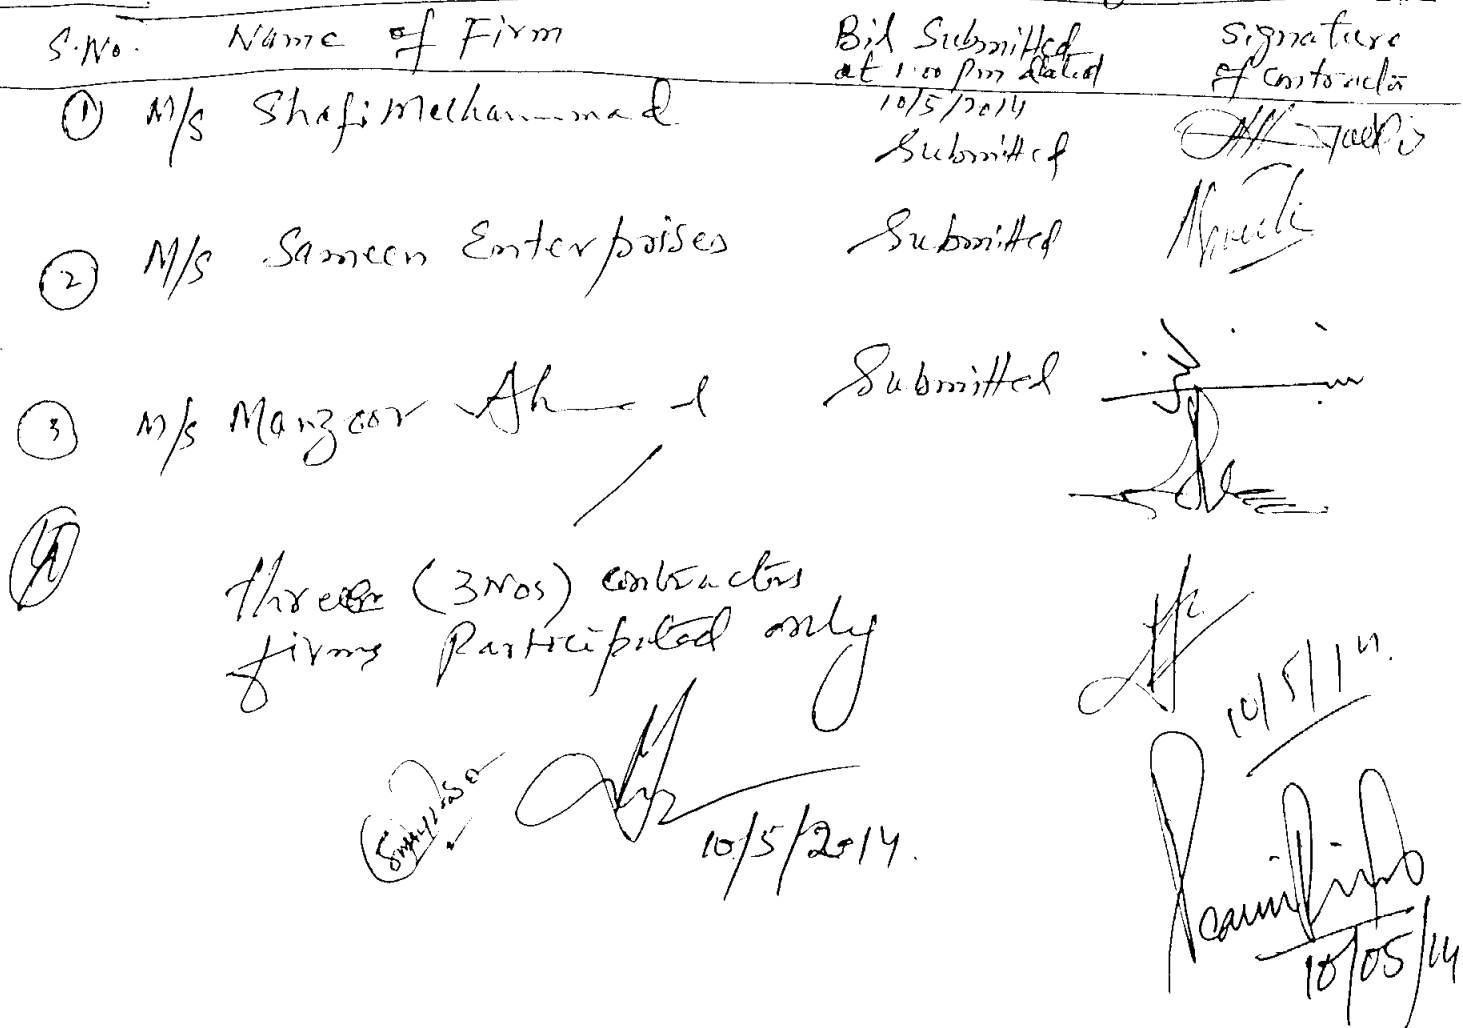 S.No. Name of Firm Bid Submitted at 1.00 pm dated 10/5/2014 Signature of Contractor
1 M/s Shafi Muhammad Submitted
2 M/s Sameen Enterprises Submitted
3 M/s Manzoor Ahmed Submitted
three (3 Nos) contractors
firms Participated only
10/5/14
10/5/2014.
10/05/14